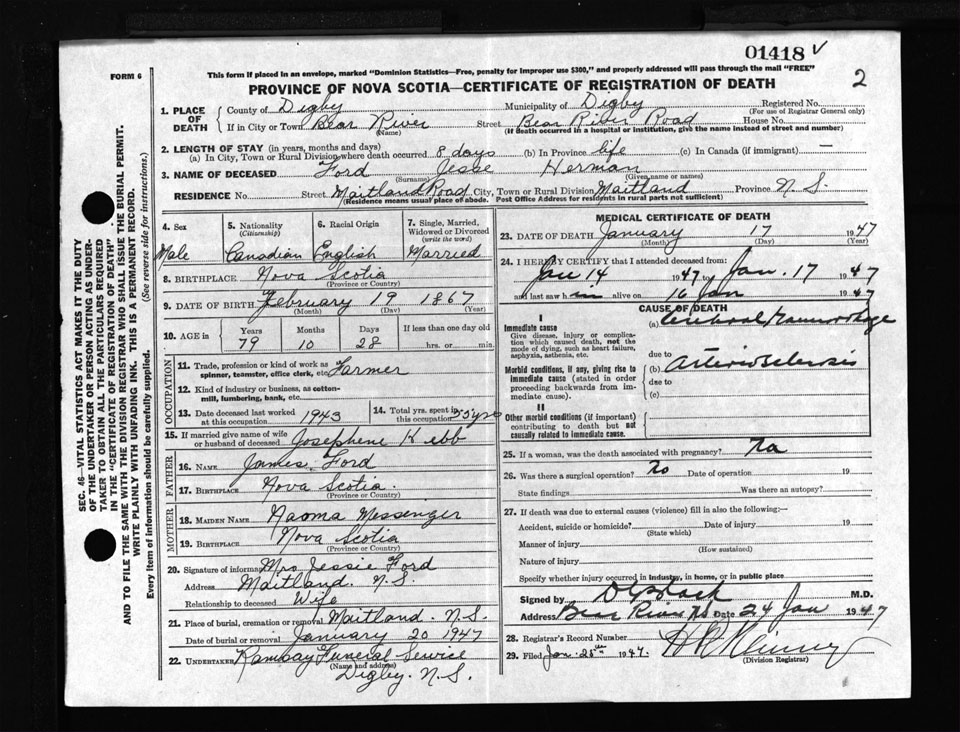 01418 √
FORM 6
This form if placed in an envelope, marked "Dominion Statistics—Free, penalty for improper use $300," and properly addressed will pass through the mail "FREE"
PROVINCE OF NOVA SCOTIA—CERTIFICATE OF REGISTRATION OF DEATH
2
SEC. 46—VITAL STATISTICS ACT MAKES IT THE DUTY
OF THE UNDERTAKER OR PERSON ACTING AS UNDER-
TAKER TO OBTAIN ALL THE PARTICULARS REQUIRED
IN THE "CERTIFICATE OF REGISTRATION OF DEATH"
AND TO FILE THE SAME WITH THE DIVISION REGISTRAR WHO SHALL ISSUE THE BURIAL PERMIT.
WRITE PLAINLY WITH UNFADING INK. THIS IS A PERMANENT RECORD.
Every item of information should be carefully supplied. (See reverse side for instructions.)
1. PLACE OF DEATH County of Digby Municipality of Digby Registered No.
(For use of Registrar General only)
If in City or Town Bear River Street Bear River Road House No.
(Name) (If death occurred in a hospital or institution, give the name instead of street and number)
2. LENGTH OF STAY (in years, months and days)
(a) In City, Town or Rural Division where death occurred 8 days (b) In Province life (c) In Canada (if immigrant) —
3. NAME OF DECEASED Ford Jesse Herman
(Surname) (Given name or names)
RESIDENCE No. Street Maitland Road City, Town or Rural Division Maitland Province N.S.
(Residence means usual place of abode. Post Office Address for residents in rural parts not sufficient)
4. Sex 5. Nationality (Citizenship) 6. Racial Origin 7. Single, Married, Widowed or Divorced (write the word)
Male Canadian English Married
8. BIRTHPLACE Nova Scotia
(Province or Country)
9. DATE OF BIRTH February 19 1867
(Month) (Day) (Year)
10. AGE in Years Months Days If less than one day old
79 10 28 hrs. or min.
OCCUPATION
11. Trade, profession or kind of work as spinner, teamster, office clerk, etc. Farmer
12. Kind of industry or business, as cotton-mill, lumbering, bank, etc.
13. Date deceased last worked at this occupation 1943 14. Total yrs. spent in this occupation 55 yrs
15. If married give name of wife or husband of deceased Josephene
FATHER
16. NAME James Ford
17. BIRTHPLACE Nova Scotia
(Province or Country)
MOTHER
18. MAIDEN NAME Naoma Messenger
19. BIRTHPLACE Nova Scotia
(Province or Country)
20. Signature of informant Mrs Jessie Ford
Address Maitland. N.S.
Relationship to deceased Wife
21. Place of burial, cremation or removal Maitland. N.S.
Date of burial or removal January 20 1947
22. UNDERTAKER Ramsay Funeral Service
(Name and address)
Digby. N.S.
MEDICAL CERTIFICATE OF DEATH
23. DATE OF DEATH January 17 1947
(Month) (Day) (Year)
24. I HEREBY CERTIFY that I attended deceased from:
Jan 14 1947 to Jan. 17 1947
and last saw him alive on 16 Jan 1947
CAUSE OF DEATH
I
Immediate cause
Give disease, injury or complication which caused death, not the mode of dying, such as heart failure, asphyxia, asthenia, etc.
(a) Cerebral Haemorrhage
due to
Morbid conditions, if any, giving rise to immediate cause (stated in order proceeding backwards from immediate cause).
(b) Arteriosclerosis
due to
(c)
II
Other morbid conditions (if important) contributing to death but not causally related to immediate cause.
25. If a woman, was the death associated with pregnancy?
26. Was there a surgical operation? No Date of operation 19
State findings Was there an autopsy?
27. If death was due to external causes (violence) fill in also the following:—
Accident, suicide or homicide? Date of injury 19
(State which)
Manner of injury
(How sustained)
Nature of injury
Specify whether injury occurred in industry, in home, or in public place
Signed by M.D.
Address Bear River N.S. Date 24 Jan 1947
28. Registrar's Record Number
29. Filed Jan. 25th 1947.
(Division Registrar)